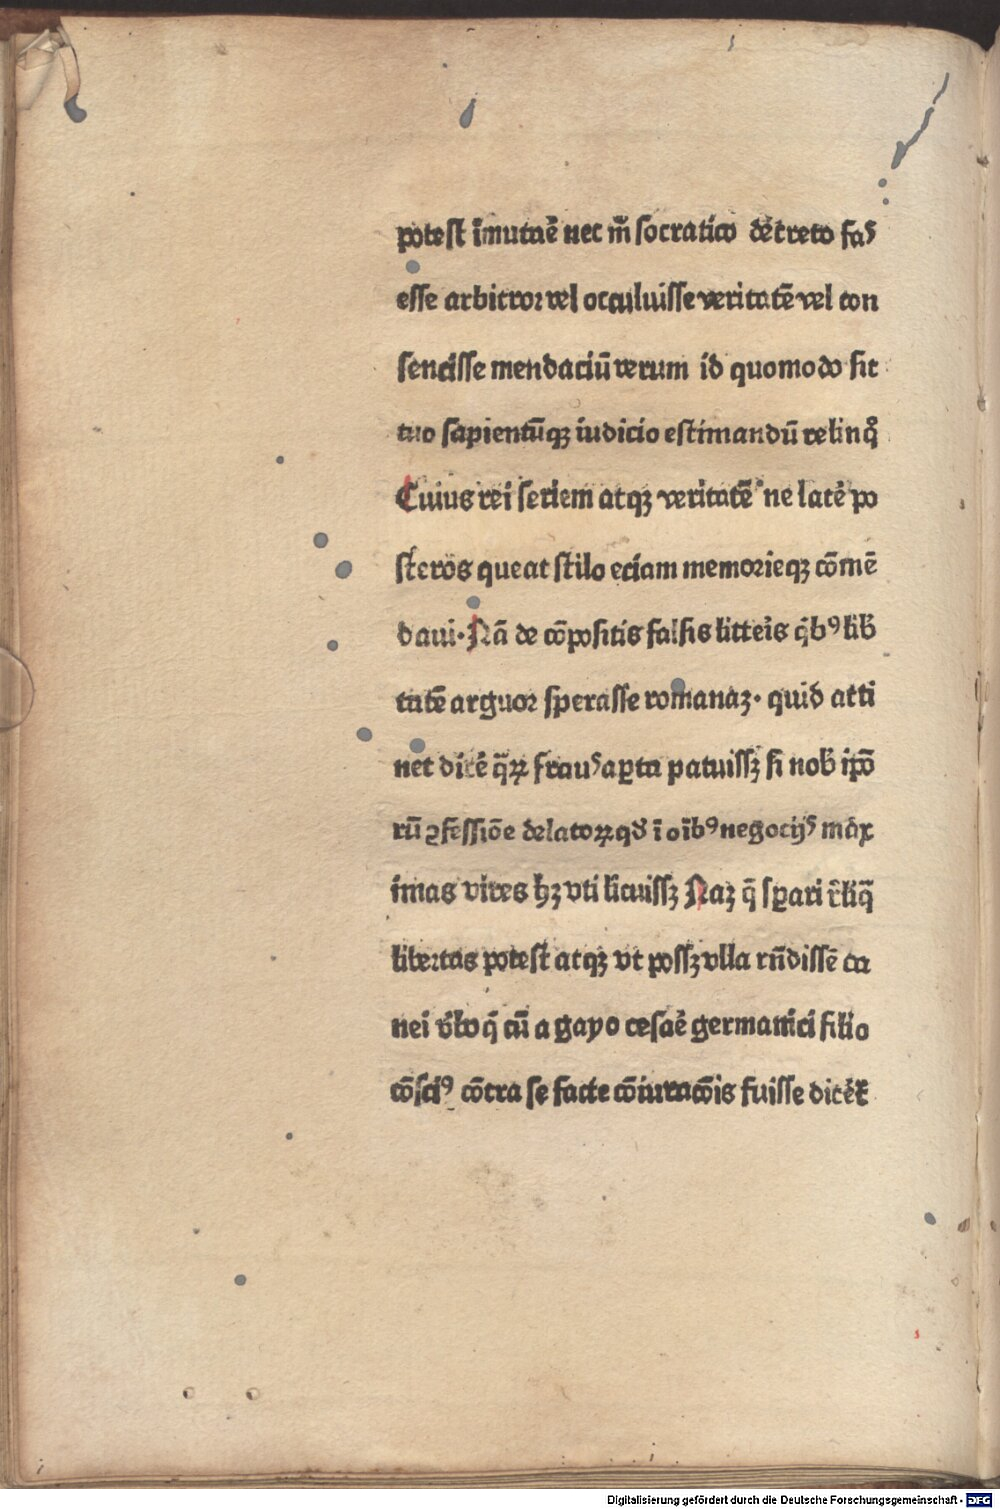 potest īmutaē nec m̄ socratico decreto fas
esse arbitror vel occuluisse veritatē vel con
sencisse mendaciū verum id quomodo sit
tuo sapientūqꝫ iudicio estimandū relinqͦ
Cuius rei seriem atqꝫ veritatē ne latē po
steros queat stilo eciam memorieqꝫ cōmē
daui. Nā de cōpositis falsis litteris qͥbꝰ lib̄
tatē arguor sperasse romanaꝫ. quid atti
net dicē q̄ꝝ fraus aꝑta patuissꝫ si nob̄ ip̄o
rū ꝯfessiōe delatoꝝ qđ ī oībꝰ negocijs max
imas vires hꝫ vti licuissꝫ Naꝫ q̄ sꝑari r̄liq̄
libertas potest atqꝫ vt possꝫ vlla rn̄dissē ca
nei v̄bo q̄ cū a gayo cesaē germanici filio
cōsciꝰ cōtra se facte cōiuracōis fuisse dicēt̄
Digitalisierung gefördert durch die Deutsche Forschungsgemeinschaft - DFG